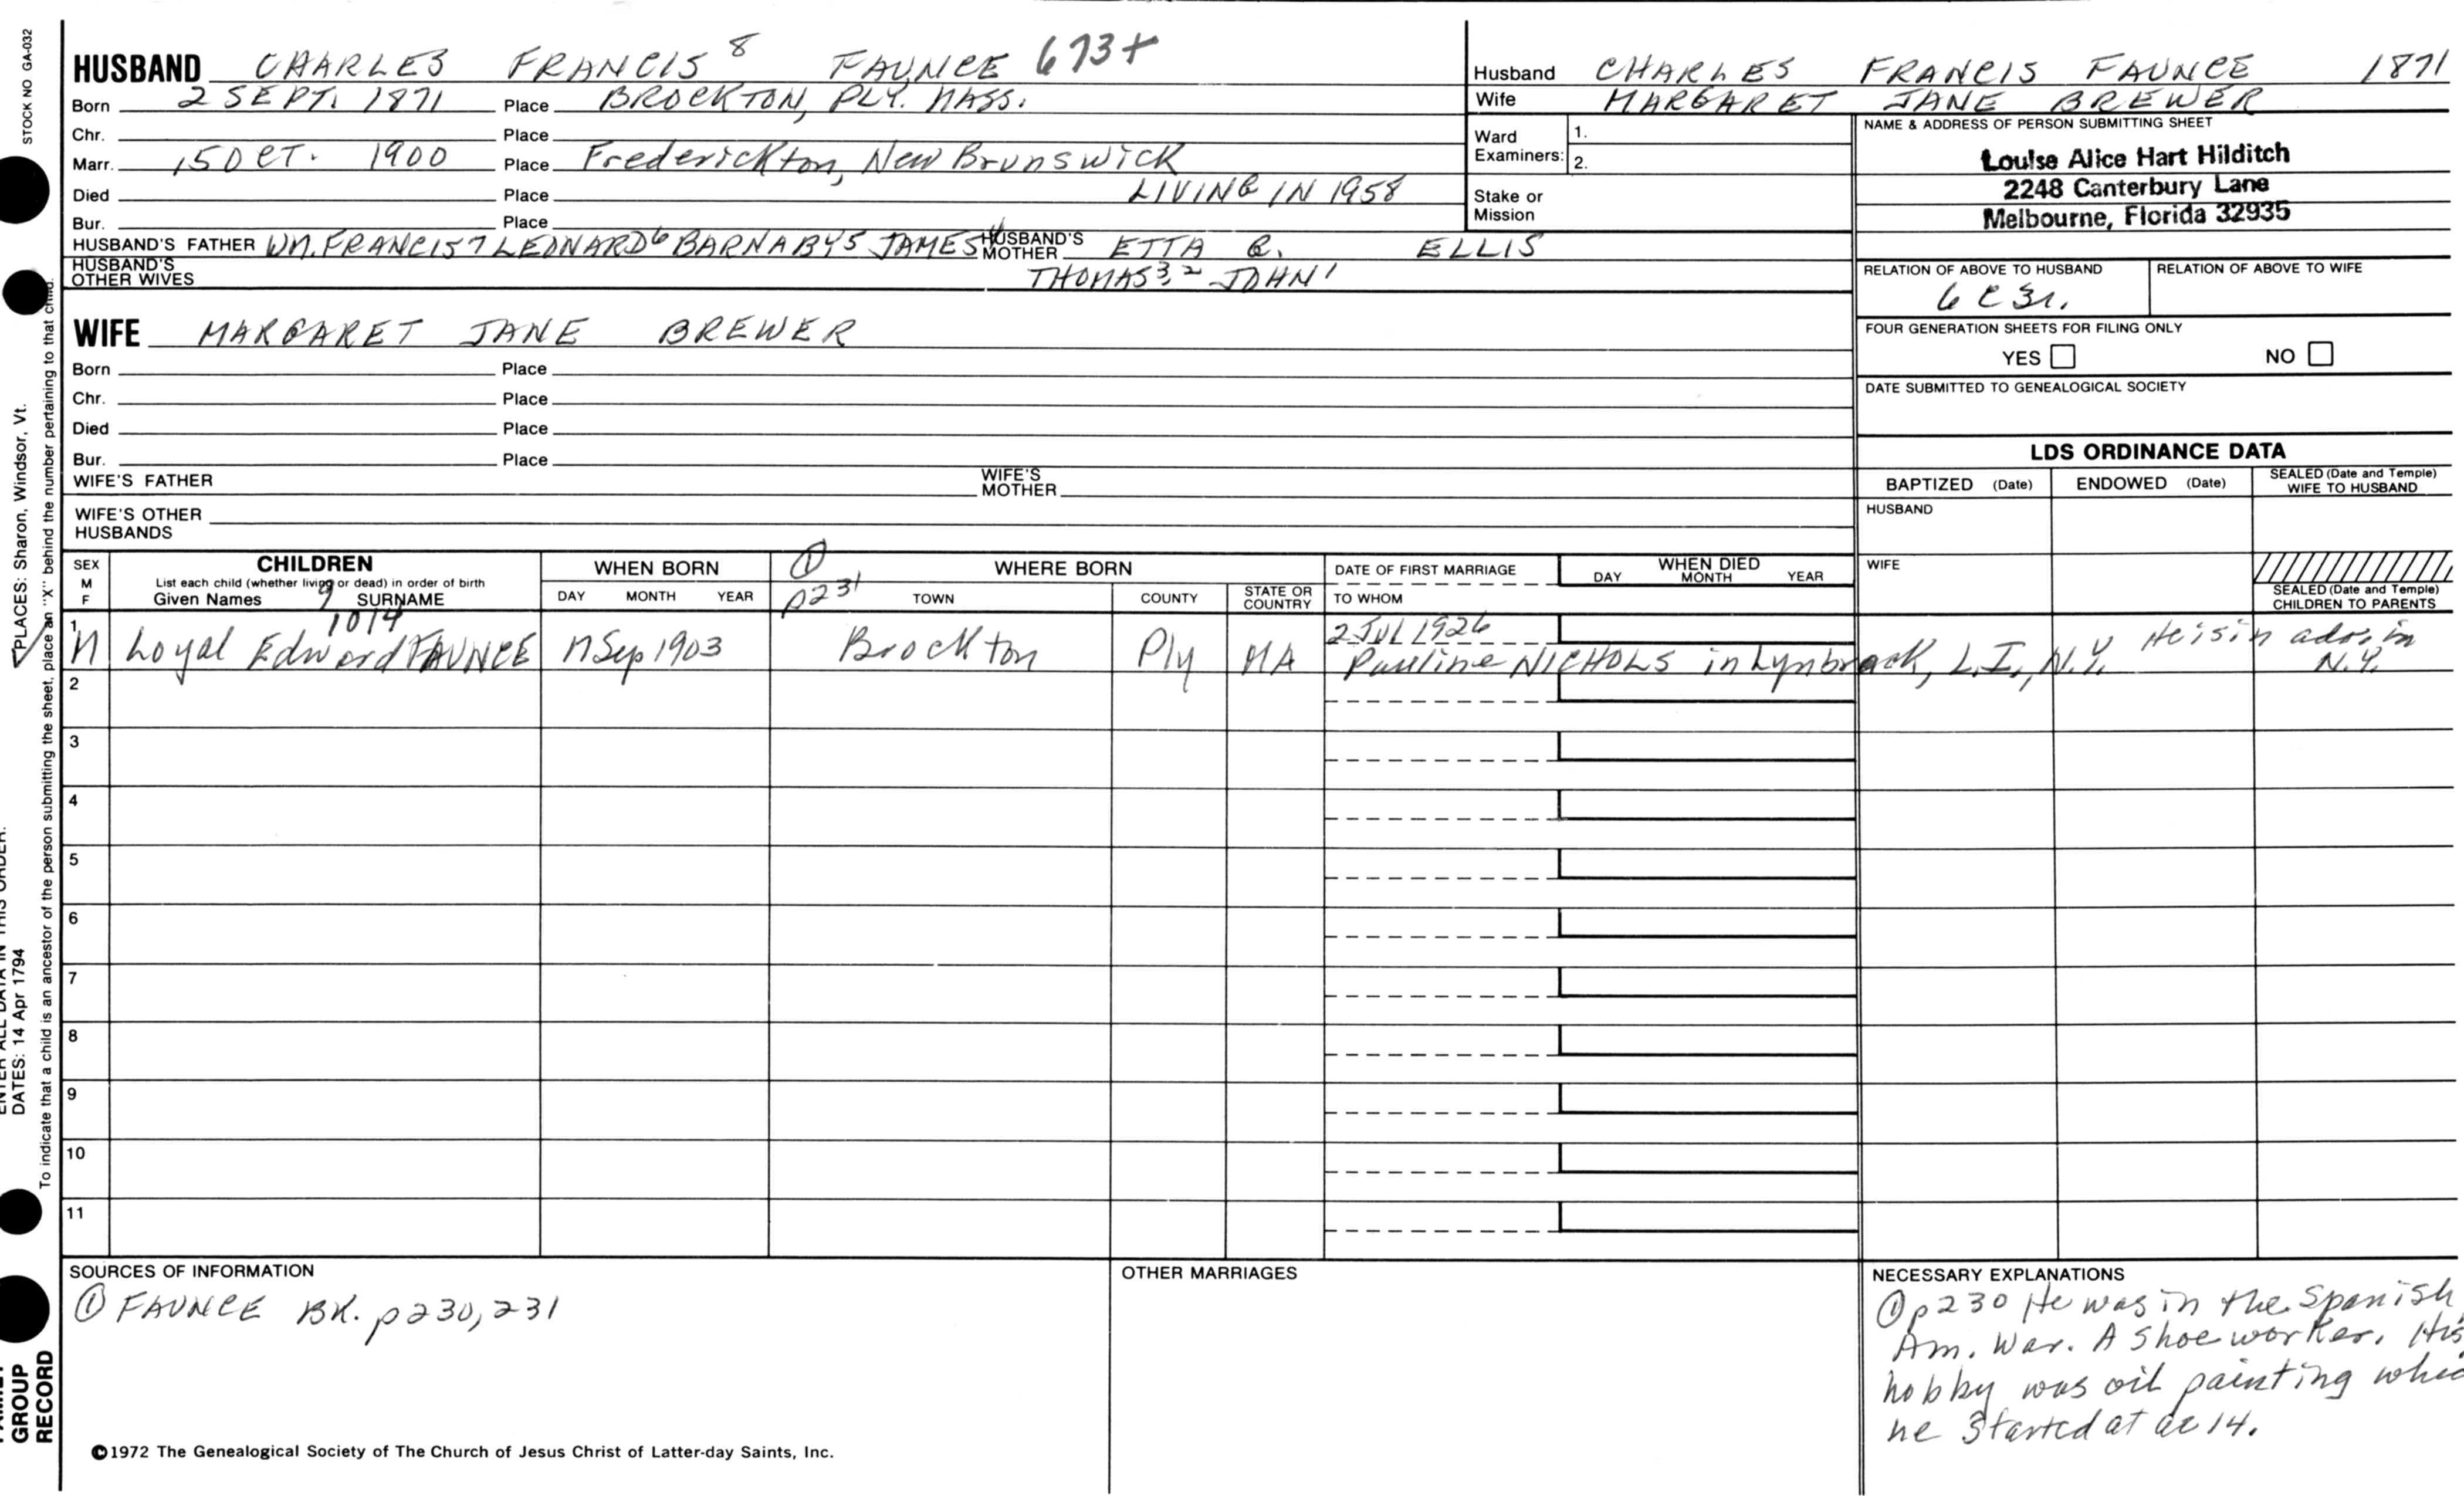 STOCK NO GA-032
HUSBAND CHARLES FRANCIS 8 FAUNCE 673+
Born 2 SEPT. 1871 Place BROCKTON, PLY. MASS.
Chr. Place
Marr. 15 OCT. 1900 Place Frederickton, New Brunswick
Died Place LIVING IN 1958
Bur. Place
HUSBAND'S FATHER WM. FRANCIS 7 LEONARD 6 BARNABY 5 JAMES 4 HUSBAND'S MOTHER ETTA C. ELLIS
HUSBAND'S OTHER WIVES THOMAS 3, 2 JOHN 1
WIFE MARGARET JANE BREWER
Born Place
Chr. Place
Died Place
Bur. Place
WIFE'S FATHER WIFE'S MOTHER
WIFE'S OTHER HUSBANDS
Husband CHARLES FRANCIS FAUNCE 1871
Wife MARGARET JANE BREWER
Ward Examiners: 1.
2.
Stake or Mission
NAME & ADDRESS OF PERSON SUBMITTING SHEET
Louise Alice Hart Hilditch
2248 Canterbury Lane
Melbourne, Florida 32935
RELATION OF ABOVE TO HUSBAND RELATION OF ABOVE TO WIFE
6 C 3r.
FOUR GENERATION SHEETS FOR FILING ONLY
YES NO
DATE SUBMITTED TO GENEALOGICAL SOCIETY
LDS ORDINANCE DATA
BAPTIZED (Date) ENDOWED (Date) SEALED (Date and Temple) WIFE TO HUSBAND
HUSBAND
WIFE
SEALED (Date and Temple) CHILDREN TO PARENTS
SEX M F
CHILDREN
List each child (whether living or dead) in order of birth
Given Names 9 SURNAME
WHEN BORN
DAY MONTH YEAR
① p231
WHERE BORN
TOWN COUNTY STATE OR COUNTRY
DATE OF FIRST MARRIAGE
TO WHOM
WHEN DIED
DAY MONTH YEAR
1014 2 JUL 1926
1 M Loyal Edward FAUNCE 11 Sep 1903 Brockton Ply MA Pauline NICHOLS in Lynbrook, L.I., N.Y. He is in adv. in N.Y.
2
3
4
5
6
7
8
9
10
11
SOURCES OF INFORMATION
① FAUNCE BK. p230, 231
OTHER MARRIAGES
NECESSARY EXPLANATIONS
① p230 He was in the Spanish
Am. War. A shoe worker. His
hobby was oil painting whic
he started at ae 14.
©1972 The Genealogical Society of The Church of Jesus Christ of Latter-day Saints, Inc.
PLACES: Sharon, Windsor, Vt.
ENTER ALL DATA IN THIS ORDER:
DATES: 14 Apr 1794
To indicate that a child is an ancestor of the person submitting the sheet, place an "X" behind the number pertaining to that child.
FAMILY
GROUP
RECORD